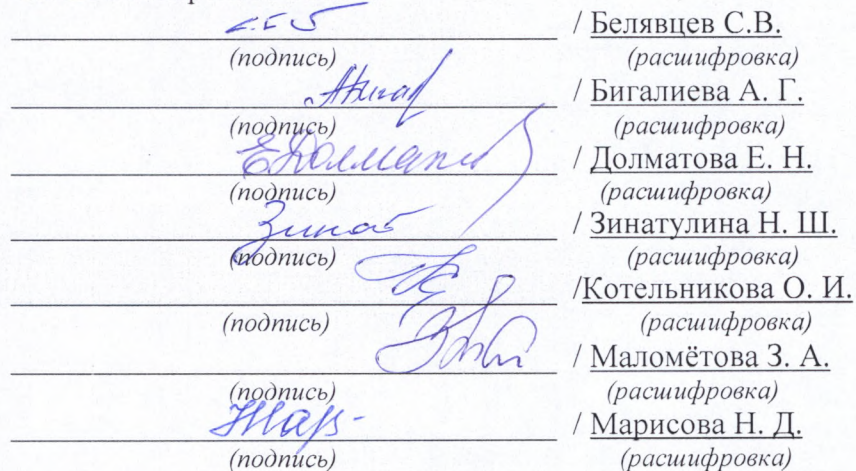 / Белявцев С.В.
(подпись) (расшифровка)
/ Бигалиева А. Г.
(подпись) (расшифровка)
/ Долматова Е. Н.
(подпись) (расшифровка)
/ Зинатулина Н. Ш.
(подпись) (расшифровка)
/Котельникова О. И.
(подпись) (расшифровка)
/ Маломётова З. А.
(подпись) (расшифровка)
/ Марисова Н. Д.
(подпись) (расшифровка)